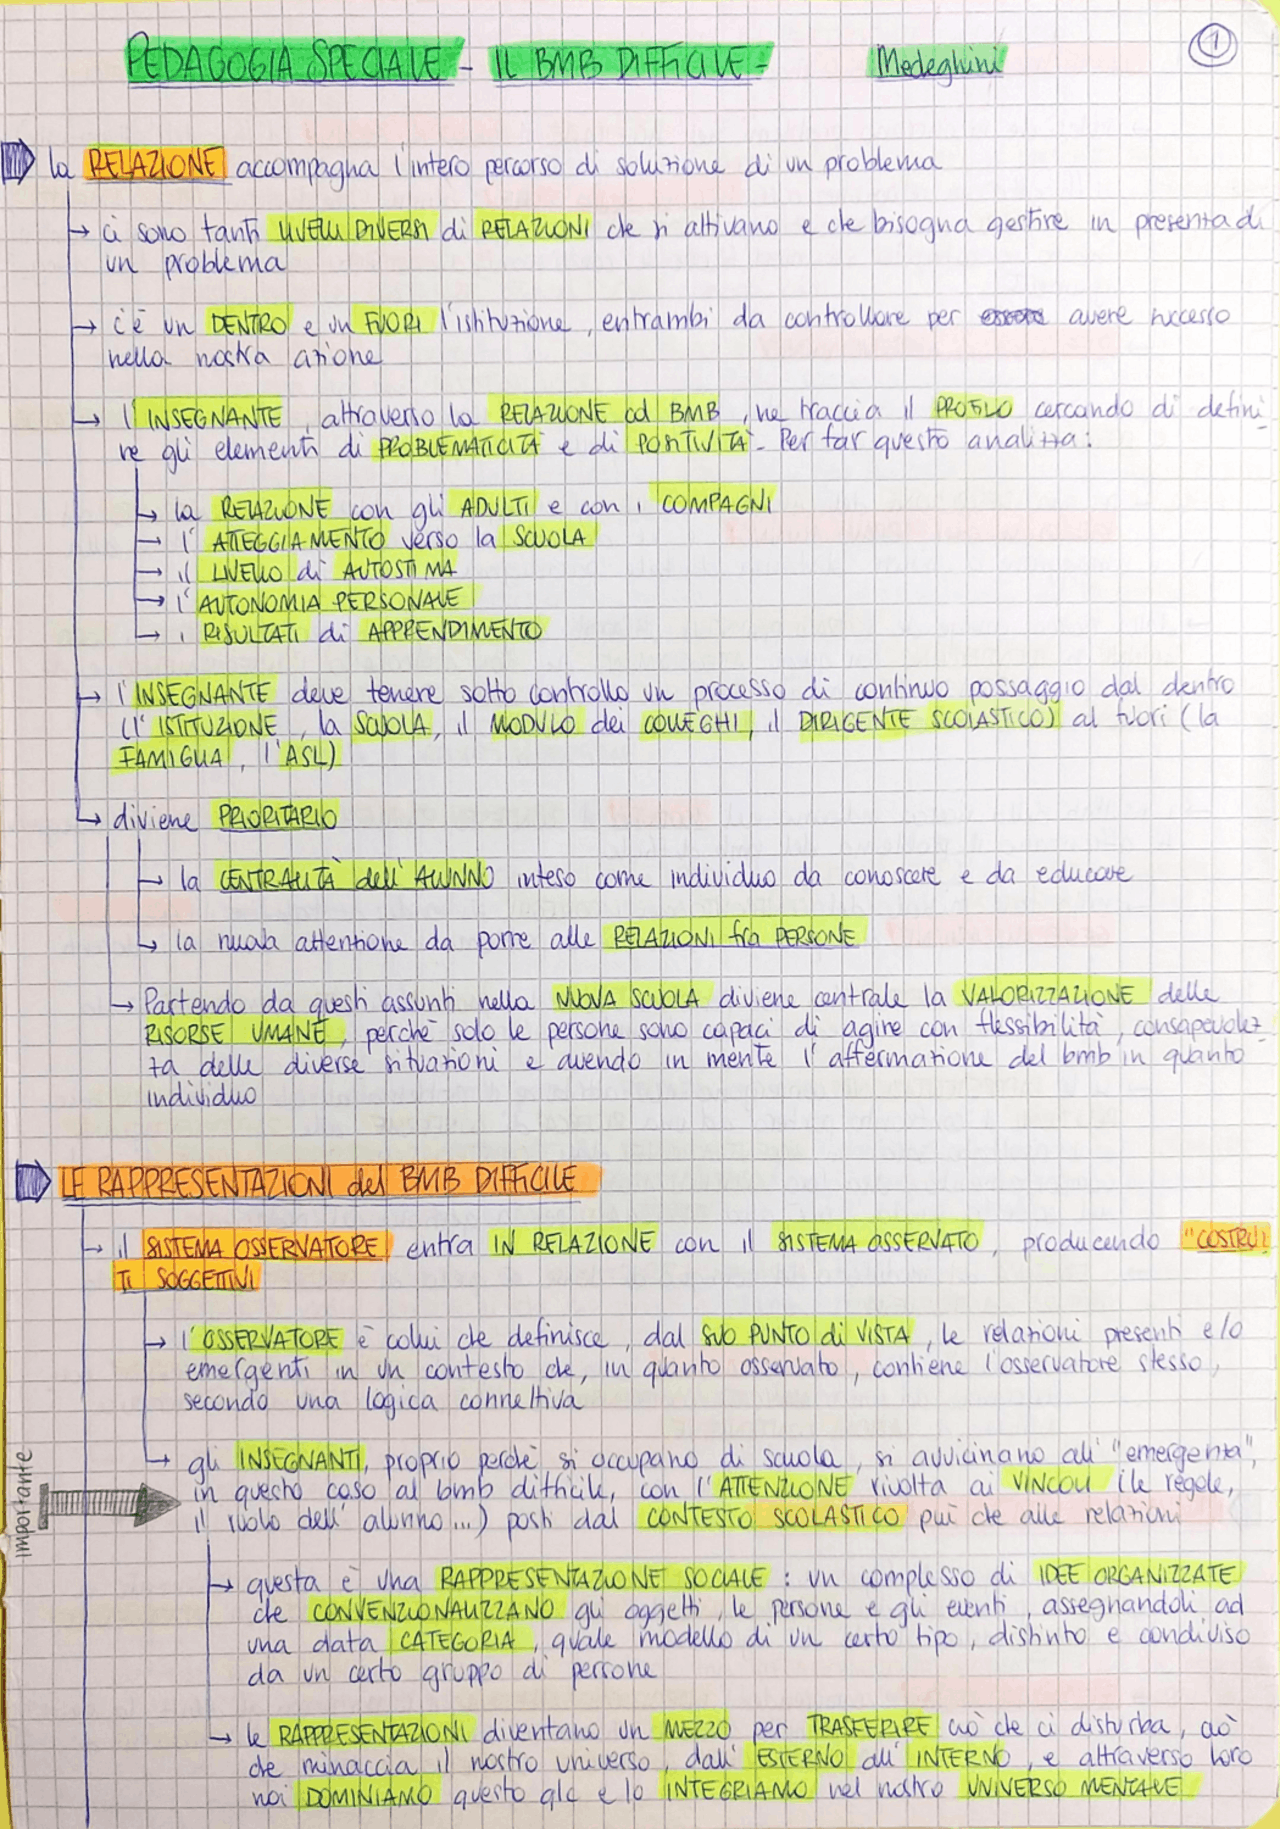 PEDAGOGIA SPECIALE - IL BMB DIFFICILE - Medeghini
1
la RELAZIONE accompagna l'intero percorso di soluzione di un problema
→ ci sono tanti LIVELLI DIVERSI di RELAZIONI che si attivano e che bisogna gestire in presenza di
un problema
→ c'è un DENTRO e un FUORI l'istituzione, entrambi da controllare per avere successo
nella nostra azione
→ l'INSEGNANTE, attraverso la RELAZIONE col BMB, ne traccia il PROFILO cercando di defini
re gli elementi di PROBLEMATICITÀ e di POSITIVITÀ. Per far questo analizza:
→ la RELAZIONE con gli ADULTI e con i COMPAGNI
→ l'ATTEGGIAMENTO verso la SCUOLA
→ il LIVELLO di AUTOSTIMA
→ l'AUTONOMIA PERSONALE
→ i RISULTATI di APPPENDIMENTO
→ l'INSEGNANTE deve tenere sotto controllo un processo di continuo passaggio dal dentro
(l'ISTITUZIONE, la SCUOLA, il MODULO dei COLLEGHI, il DIRIGENTE SCOLASTICO) al fuori (la
FAMIGLIA, l'ASL)
→ diviene PRIORITARIO
→ la CENTRALITÀ dell'ALUNNO inteso come individuo da conoscere e da educare
→ la nuova attenzione da porre alle RELAZIONI fra PERSONE
→ Partendo da questi assunti nella NUOVA SCUOLA diviene centrale la VALORIZZAZIONE delle
RISORSE UMANE, perchè solo le persone sono capaci di agire con flessibilità, consapevolez
za delle diverse situazioni e avendo in mente l'affermazione del bmb in quanto
individuo
LE RAPPRESENTAZIONI del BMB DIFFICILE
→ il SISTEMA OSSERVATORE entra IN RELAZIONE con il SISTEMA OSSERVATO, producendo "COSTRU
TI SOGGETTIVI
→ l'OSSERVATORE è colui che definisce, dal SUO PUNTO di VISTA, le relazioni presenti e/o
emergenti in un contesto che, in quanto osservato, contiene l'osservatore stesso,
secondo una logica connettiva
importante
→ gli INSEGNANTI, proprio perchè si occupano di scuola, si avvicinano all'"emergenza",
in questo caso al bmb difficile, con l'ATTENZIONE rivolta ai VINCOLI (le regole,
il ruolo dell'alunno...) posti dal CONTESTO SCOLASTICO più che alle relazioni
→ questa è una RAPPRESENTAZIONE SOCIALE: un complesso di IDEE ORGANIZZATE
che CONVENZIONALIZZANO gli oggetti, le persone e gli eventi, assegnandoli ad
una data CATEGORIA, quale modello di un certo tipo, distinto e condiviso
da un certo gruppo di persone
→ le RAPPRESENTAZIONI diventano un MEZZO per TRASFERIRE ciò che ci disturba, ciò
che minaccia il nostro universo, dall'ESTERNO all'INTERNO, e attraverso loro
noi DOMINIAMO questo qlc e lo INTEGRIAMO nel nostro UNIVERSO MENTALE